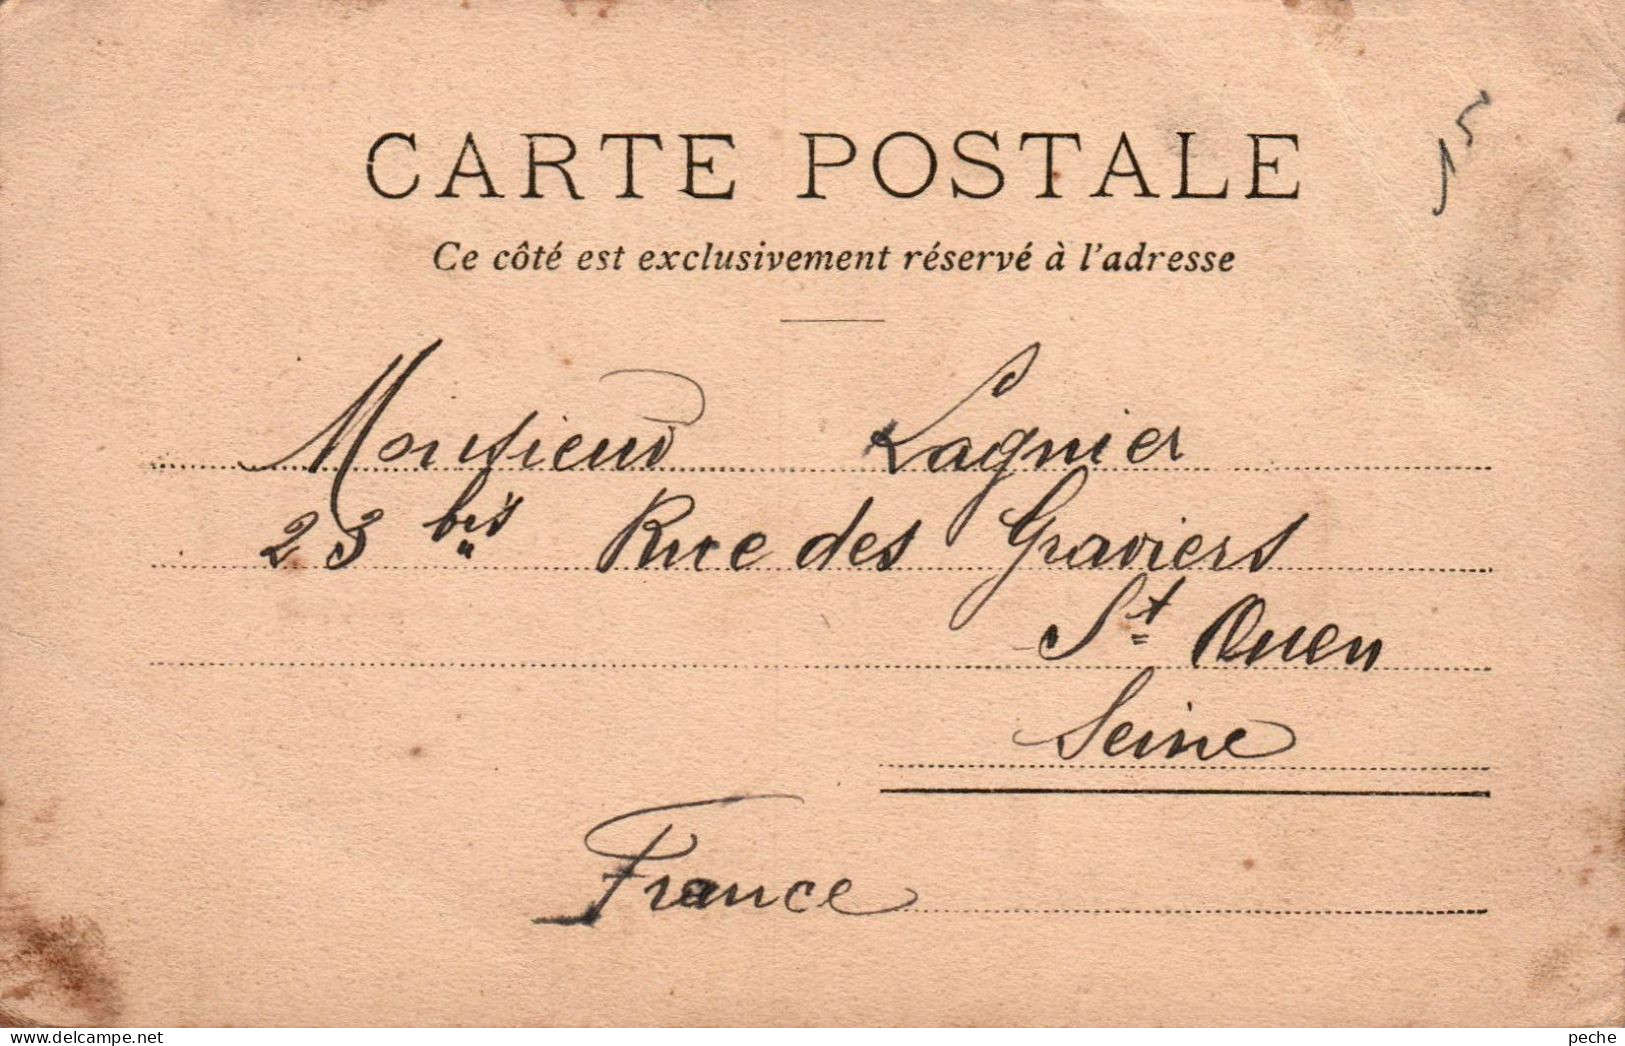 CARTE POSTALE
15
Ce côté est exclusivement réservé à l'adresse
Monsieur Lagnier
23 bis Rue des Graviers
St Ouen
Seine
France
www.delcampe.net
peche